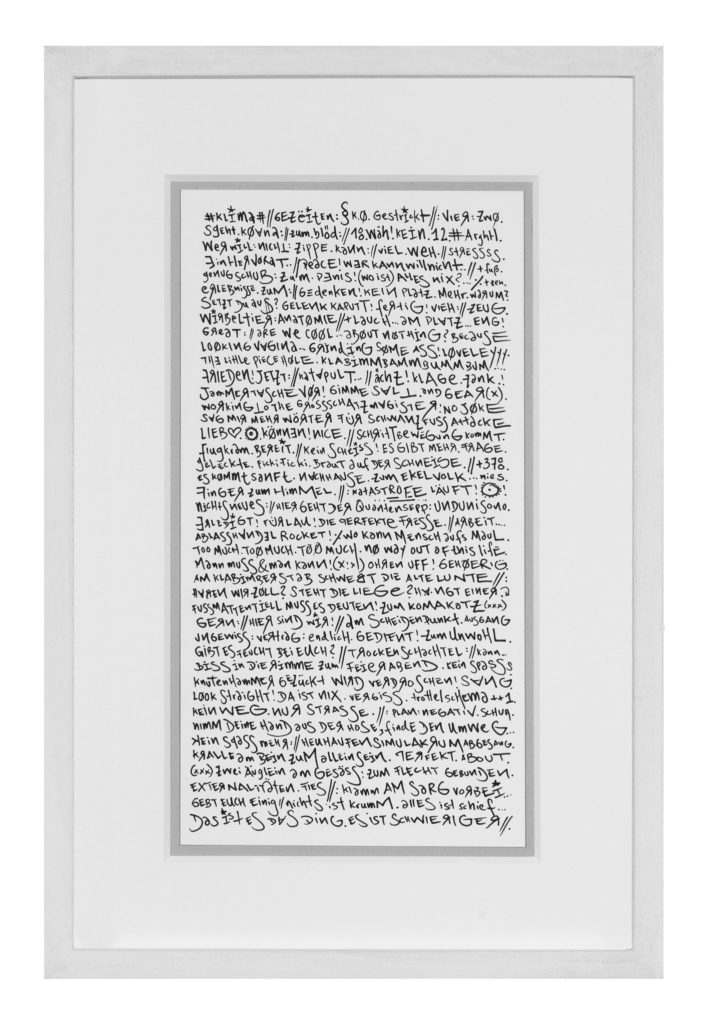 #KLima#//GEZEiTEN:§K.O. GestRickt//:VIER:ZWO.
Sgeht.KØVNA://zum.blöd://18.wäh!KEiN.12.#Arghl.
WER WiLL:NICHT: ZiPPE.KANN://ViEL.WEH.//STRESSSS.
EiN HER VORAT..//peace! WER KANN will nicht..//+fuß.
genug SCHUB:Zum.PENiS!(wo ist) ALLES NiX?...
ERLEBNiSSE.ZUM://Gedenken! KEIN PLATZ.MEHR.WARUM?
SETZT Du auß? GELENK KAPUTT! fERTiG! ViEH://ZEUG.
WiRBELTiER:ANATOMiE//+LAUCH...AM PLATZ...ENG!
GREAT://ARE WE COOL...ABOUT NOTHING? BECAUSE
LOOKiNG VAGiNA...GRiNDiNG SØME ASS! LØVELEY!!!
THE LiTTLE PiECE HOLE. KLABIMMBAMMBUMMBUM!...
FRiEDEN! JETZT://KATAPULT...//åchZ! KLAGE.
JAMMERTASCHE VØR! GiMME SALT..AND GEAR(x).
WORKiNG TO THE GROSSSCHATZMAGiSTER! NO JØKE
SAG MiR MEHR WÖRTER FÜR SCHWANZ FUSS AttACKE
LiEB♡.KØNNEN! NiCE.//SCHRiTTBEWEGUNG kommt.
flugkram.BEREiT.//Kein SCHEiSS! ES GiBT MEHR.FRAGE.
GELECKTE.FiCKiFiCKi.BRAUT auf DER SCHNEiSE.//+378.
ES KOMMT SANFT. NACHHAUSE. ZUM EKELVOLK...
FiNGER zum HiMMEL.//:KATASTROFE LÄUFT!
NiCHTS NEUES://HiER GEHT DER QuANTENSEPP:UND UNiSONO.
ERLEDiGT! FÜR LAU! DIE PERFEKTE FRESSE.//ARBEiT....
ABLASSHANDEL ROCKET! wo kann MENSCH aufs MAUL.
TOO MUCH.TOO MUCH.TOO MUCH. NO WAY OUT Of this life.
MANN muss & man kann!(X:>) OHREN UFF! GEHØERiG.
AM KLABiMBERSTAB SCHWEBT DiE ALTE LUNTE//:
HUREN WiR ZOLL? STEHT DiE LiEGE?
FUSSMATTENTiELL MUSS ES DEUTEN! ZUM KOMAKOTZ(xxx)
GERN://HiER SiND WiR!//AM SCHEiDENPunKt.AUSGANG
UNGEWiSS:VERTRAG:ENDLiCH.GEDiENT!-Zum UNWOHL.
GiBT ES FEUCHT BEi EUCH?//TROCKENSCHACHTEL://kann..
BiSS iN DiE RiMME zum FEiERABEND.KEiN SPASSS
KNUTENHAMMER GEZÜCKT WiRD VERDROSCHEN! SANG
LOOK STRAiGHT! DA iST NiX.VERGiSS. trottelschema++1.
KEiN WEG.NUR STRASSE.//:PLAN:NEGATiV.SCHUR.
NiMM DEiNE HAND AUS DER HOSE, finde DEN UMWEG...
KEiN SPASS MEHR://HEUHAUFENSiMULAKRUM ABGESANG.
KRALLE am BEiN ZUM ALLEiNSEiN. PERFEKT.ABOUT
(xxx) ZWEi ÄUGLEiN AM GESÄSS:ZUM FLECHT GEBUNDEN.
EXTERNALiTÄTEN.FiES//:klamm AM SARG VORBEi...
GEBT EUCH EiNiG//nichts iST KRUMM.ALLES iST schief...
DAS iST ES DAS DiNG.ES iST SCHWiERiGER//.